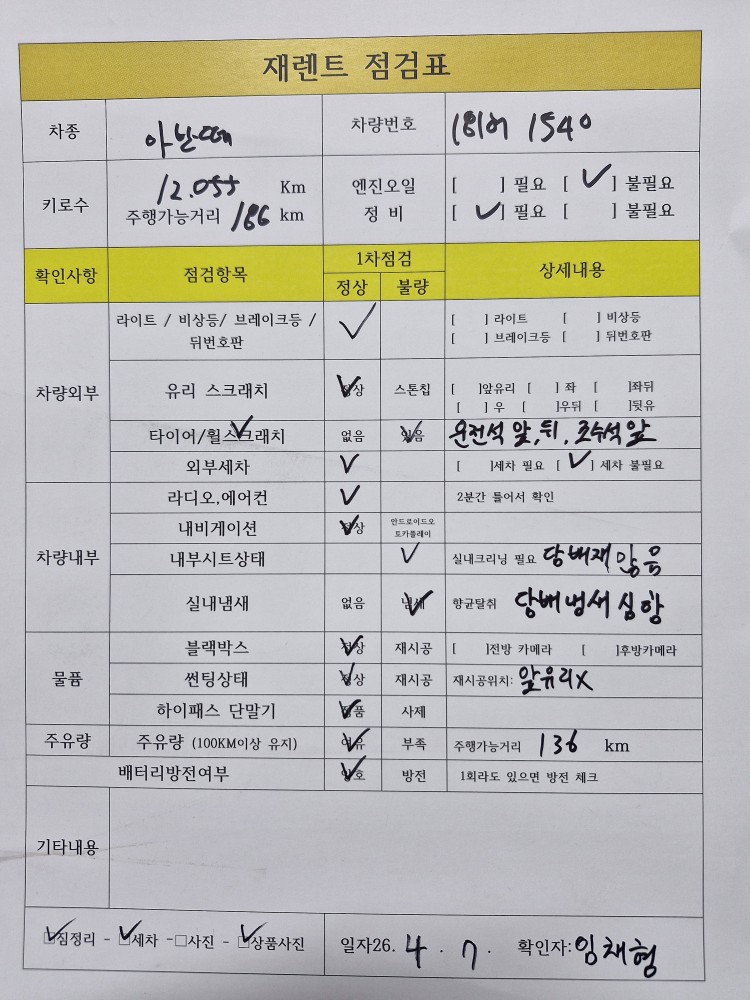 재렌트 점검표
차종 아반떼 차량번호 181허 1540
키로수 12.055 Km 엔진오일 [ ] 필요 [ ✓ ] 불필요
주행가능거리 186 km 정 비 [ ✓ ] 필요 [ ] 불필요
확인사항 점검항목 1차점검 상세내용
정상 불량
차량외부 라이트 / 비상등/ 브레이크등 / ✓ [ ] 라이트 [ ] 비상등
뒤번호판 [ ] 브레이크등 [ ] 뒤번호판
유리 스크래치 정상 ✓ 스톤칩 [ ]앞유리 [ ] 좌 [ ]좌뒤
[ ] 우 [ ]우뒤 [ ]뒷유
타이어/휠스크래치 ✓ 없음 있음 ✓ 운전석 앞, 뒤, 조수석 앞
외부세차 ✓ [ ]세차 필요 [ ✓ ] 세차 불필요
차량내부 라디오,에어컨 ✓ 2분간 틀어서 확인
내비게이션 정상 ✓ 안드로이드오
토카플레이
내부시트상태 ✓ 실내크리닝 필요 담배재 많음
실내냄새 없음 냄새 ✓ 향균탈취 담배냄새 심함
물품 블랙박스 정상 ✓ 재시공 [ ]전방 카메라 [ ]후방카메라
썬팅상태 정상 ✓ 재시공 재시공위치: 앞유리X
하이패스 단말기 정품 ✓ 사제
주유량 주유량 (100KM이상 유지) 여유 ✓ 부족 주행가능거리 136 km
배터리방전여부 양호 ✓ 방전 1회라도 있으면 방전 체크
기타내용
☑짐정리 - ☑세차 -□사진 - ☑상품사진 일자26. 4 . 7 . 확인자:임채형